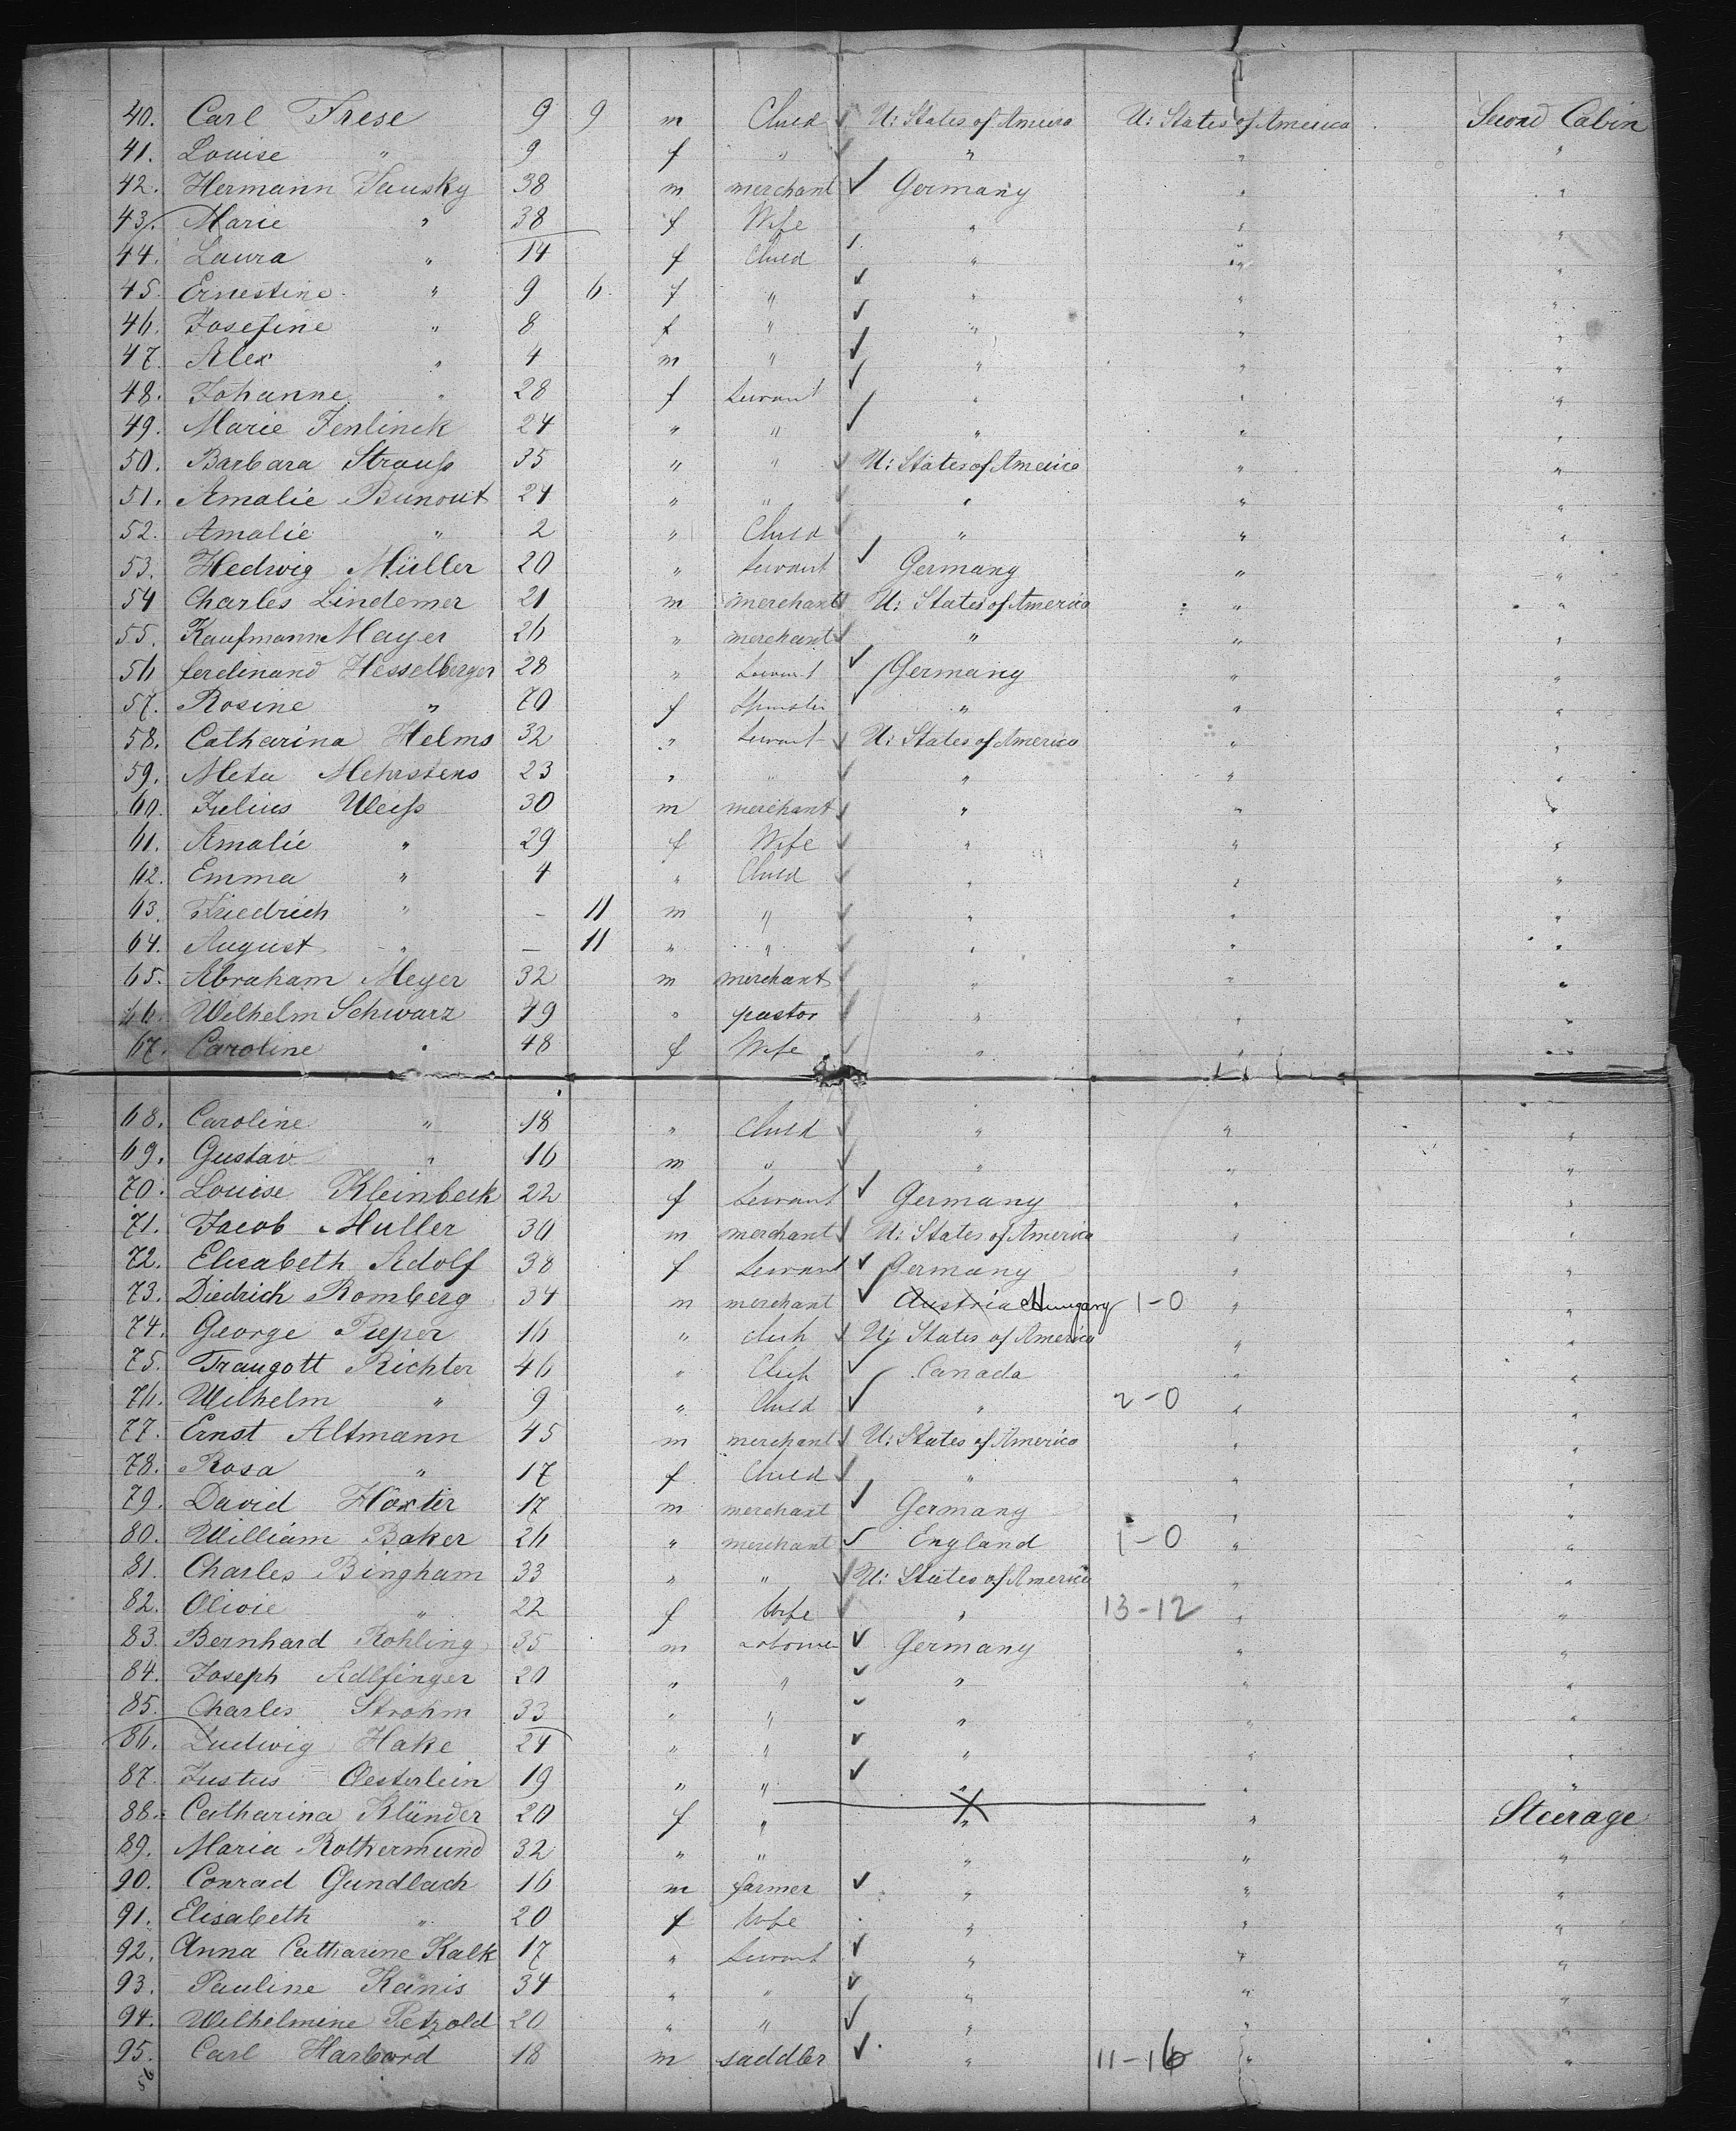 40. Carl Frese 9 9 m Child U: States of America U: States of America Second Cabin
41. Louise " 9 f " " " "
42. Hermann Tausky 38 m merchant Germany " "
43. Marie " 38 f Wife " " "
44. Laura " 14 f Child " " "
45. Ernestine " 9 6 f " " " "
46. Josefine " 8 f " " " "
47. Alex " 4 m " " " "
48. Johanne " 28 f servant " " "
49. Marie Fenlinck 24 " " " " "
50. Barbara Strauß 35 " " U: States of America " "
51. Amalie Bunout 24 " " " " "
52. Amalie " 2 " Child " " "
53. Hedwig Müller 20 " servant Germany " "
54 Charles Lindemer 21 m merchant U: States of America " "
55. Kaufmann Mayer 26 " merchant " " "
56 ferdinand Hesselberger 28 " servant Germany " "
57. Rosine " 70 f Spinster " " "
58. Catharina Helms 32 " servant U: States of America " "
59. Meta Mehrstens 23 " " " " "
60. Julius Weiß 30 m merchant " " "
61. Amalie " 29 f Wife " " "
62. Emma " 4 " Child " " "
63. Friedrich " – 11 m " " " "
64. August " – 11 " " " " "
65. Abraham Meyer 32 m merchant " " "
66. Wilhelm Schwarz 49 " pastor " " "
67. Caroline " 48 f Wife " " "
68. Caroline " 18 " Child " " "
69. Gustav " 16 m " " " "
70. Louise Kleinbeck 22 f servant Germany " "
71. Jacob Muller 30 m merchant U: States of America " "
72. Elisabeth Adolf 38 f servant Germany " "
73. Diedrich Romberg 34 m merchant Austria Hungary 1-0 " "
74. George Pieper 16 " clerk U: States of America " "
75. Traugott Richter 46 " Clerk Canada " "
76. Wilhelm " 9 " Child " 2-0 " "
77. Ernst Altmann 45 m merchant U: States of America " "
78. Rosa " 17 f Child " " "
79. David Höxter 17 m merchant Germany " "
80. William Baker 26 " merchant England 1-0 " "
81. Charles Bingham 33 " " U: States of America " "
82. Olivie " 22 f Wife " 13-12 " "
83. Bernhard Rohling 35 m Labourer Germany " "
84. Joseph Adlfinger 20 " " " " "
85. Charles Strohm 33 " " " " "
86. Ludwig Hake 24 " " " " "
87. Justus Oesterlein 19 " " " " "
88. Catharina Klünder 20 f " " " Steerage
89. Maria Rothermund 32 " " " " "
90. Conrad Gundlach 16 m farmer " " "
91. Elisabeth " 20 f Wife " " "
92. Anna Catharine Kalk 17 " servant " " "
93. Pauline Kanis 34 " " " " "
94. Wilhelmine Petzold 20 " " " " "
95. Carl Harbord 18 m saddler " 11-16 " "